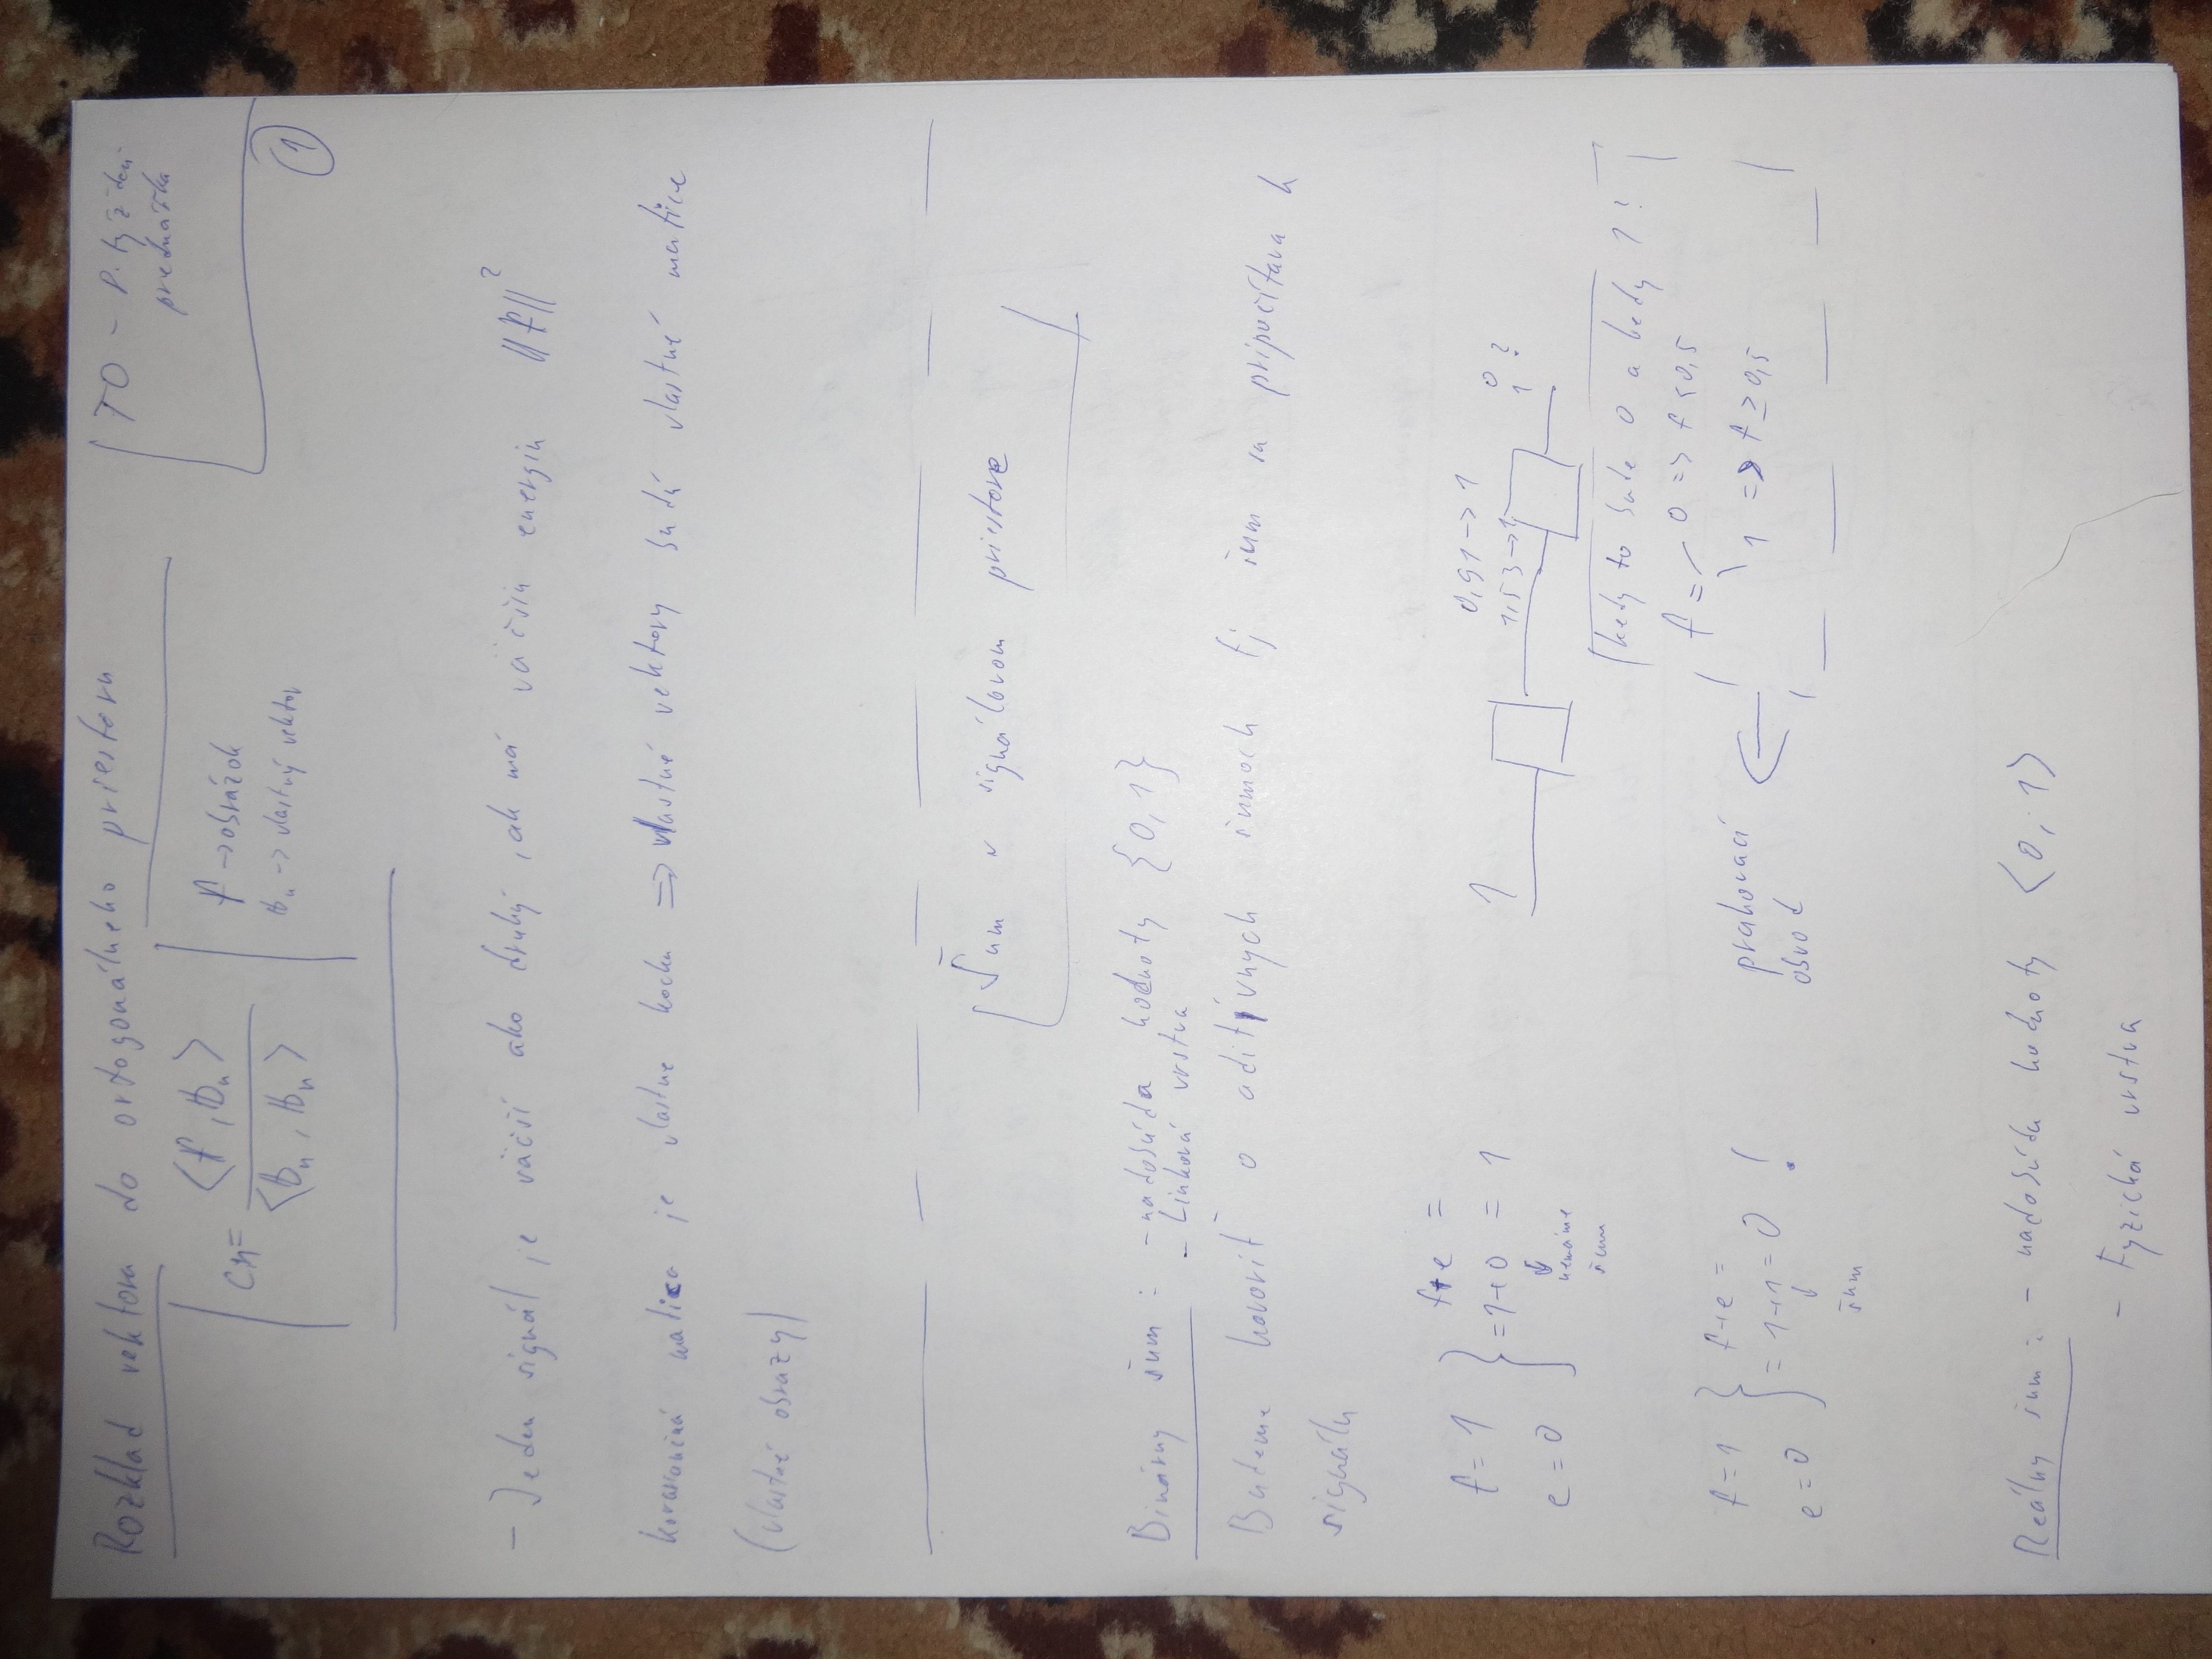 Rozklad vektora do ortogonálneho priestoru
TO - P. týždeň
prednáška
1
cn = <f, bn> / <bn, bn>
f -> obrázok
bn -> vlastný vektor
- Jeden signál je väčší ako druhý, ak má väčšiu energiu ||f||²
matica je vlastne kocka => vlastné vektory budú vlastné matice
(vlastné obrazy)
Šum v signálovom priestore
Binárny šum : - nadobúda hodnoty {0,1}
- Linková vrstva
Budeme hovoriť o aditívnych šumoch tj šum sa pripočítava k
signálu
f+e =
f = 1
= 1+0 = 1
e = 0
nemáme
šum
1
0,91 -> 1
1,53 -> 1
0
1 ?
kedy to bude 0 a kedy 1?
f = 0 => f < 0,5
1 => f ≥ 0,5
prahovací
obvod
f = 1
f+e =
= 1+1 = 0 !
e = 0
šum
Reálny šum : - nadobúda hodnoty <0, 1>
- Fyzická vrstva